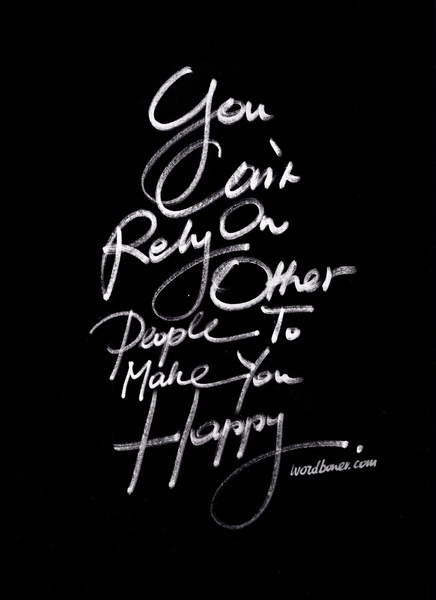 You
Can't
Rely On
Other
People To
Make You
Happy.
wordboner.com